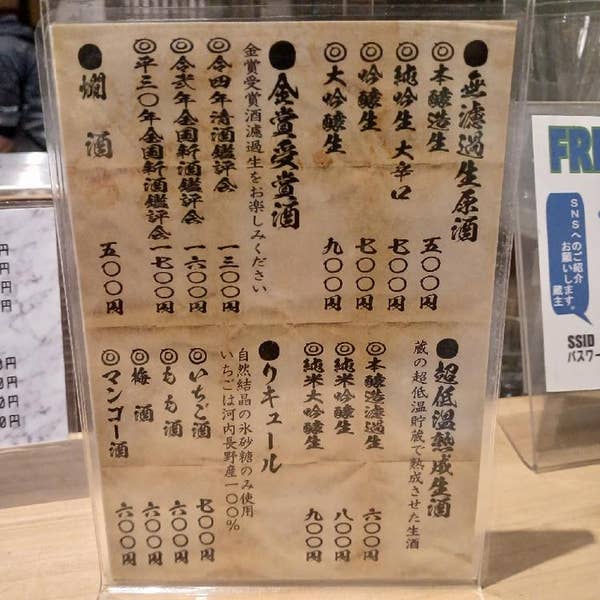 ●無濾過生原酒
◎本醸造生 五〇〇円
◎純吟生 大辛口 七〇〇円
◎吟醸生 七〇〇円
◎大吟醸生 九〇〇円
●金賞受賞酒
金賞受賞酒濾過生をお楽しみください
◎令四年清酒鑑評会 一三〇〇円
◎令弐年全国新酒鑑評会 一六〇〇円
◎平三〇年全国新酒鑑評会 一七〇〇円
●燗酒 五〇〇円
●超低温熟成生酒
蔵の超低温貯蔵で熟成させた生酒
◎本醸造濾過生 六〇〇円
◎純米吟醸生 八〇〇円
◎純米大吟醸生 九〇〇円
●リキュール
自然結晶の氷砂糖のみ使用
いちごは河内長野産一〇〇%
◎いちご酒 七〇〇円
◎もも酒 六〇〇円
◎梅酒 六〇〇円
◎マンゴー酒 六〇〇円
SNSへのご紹介
お願いします。
蔵主
SSID